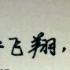 飞翔，